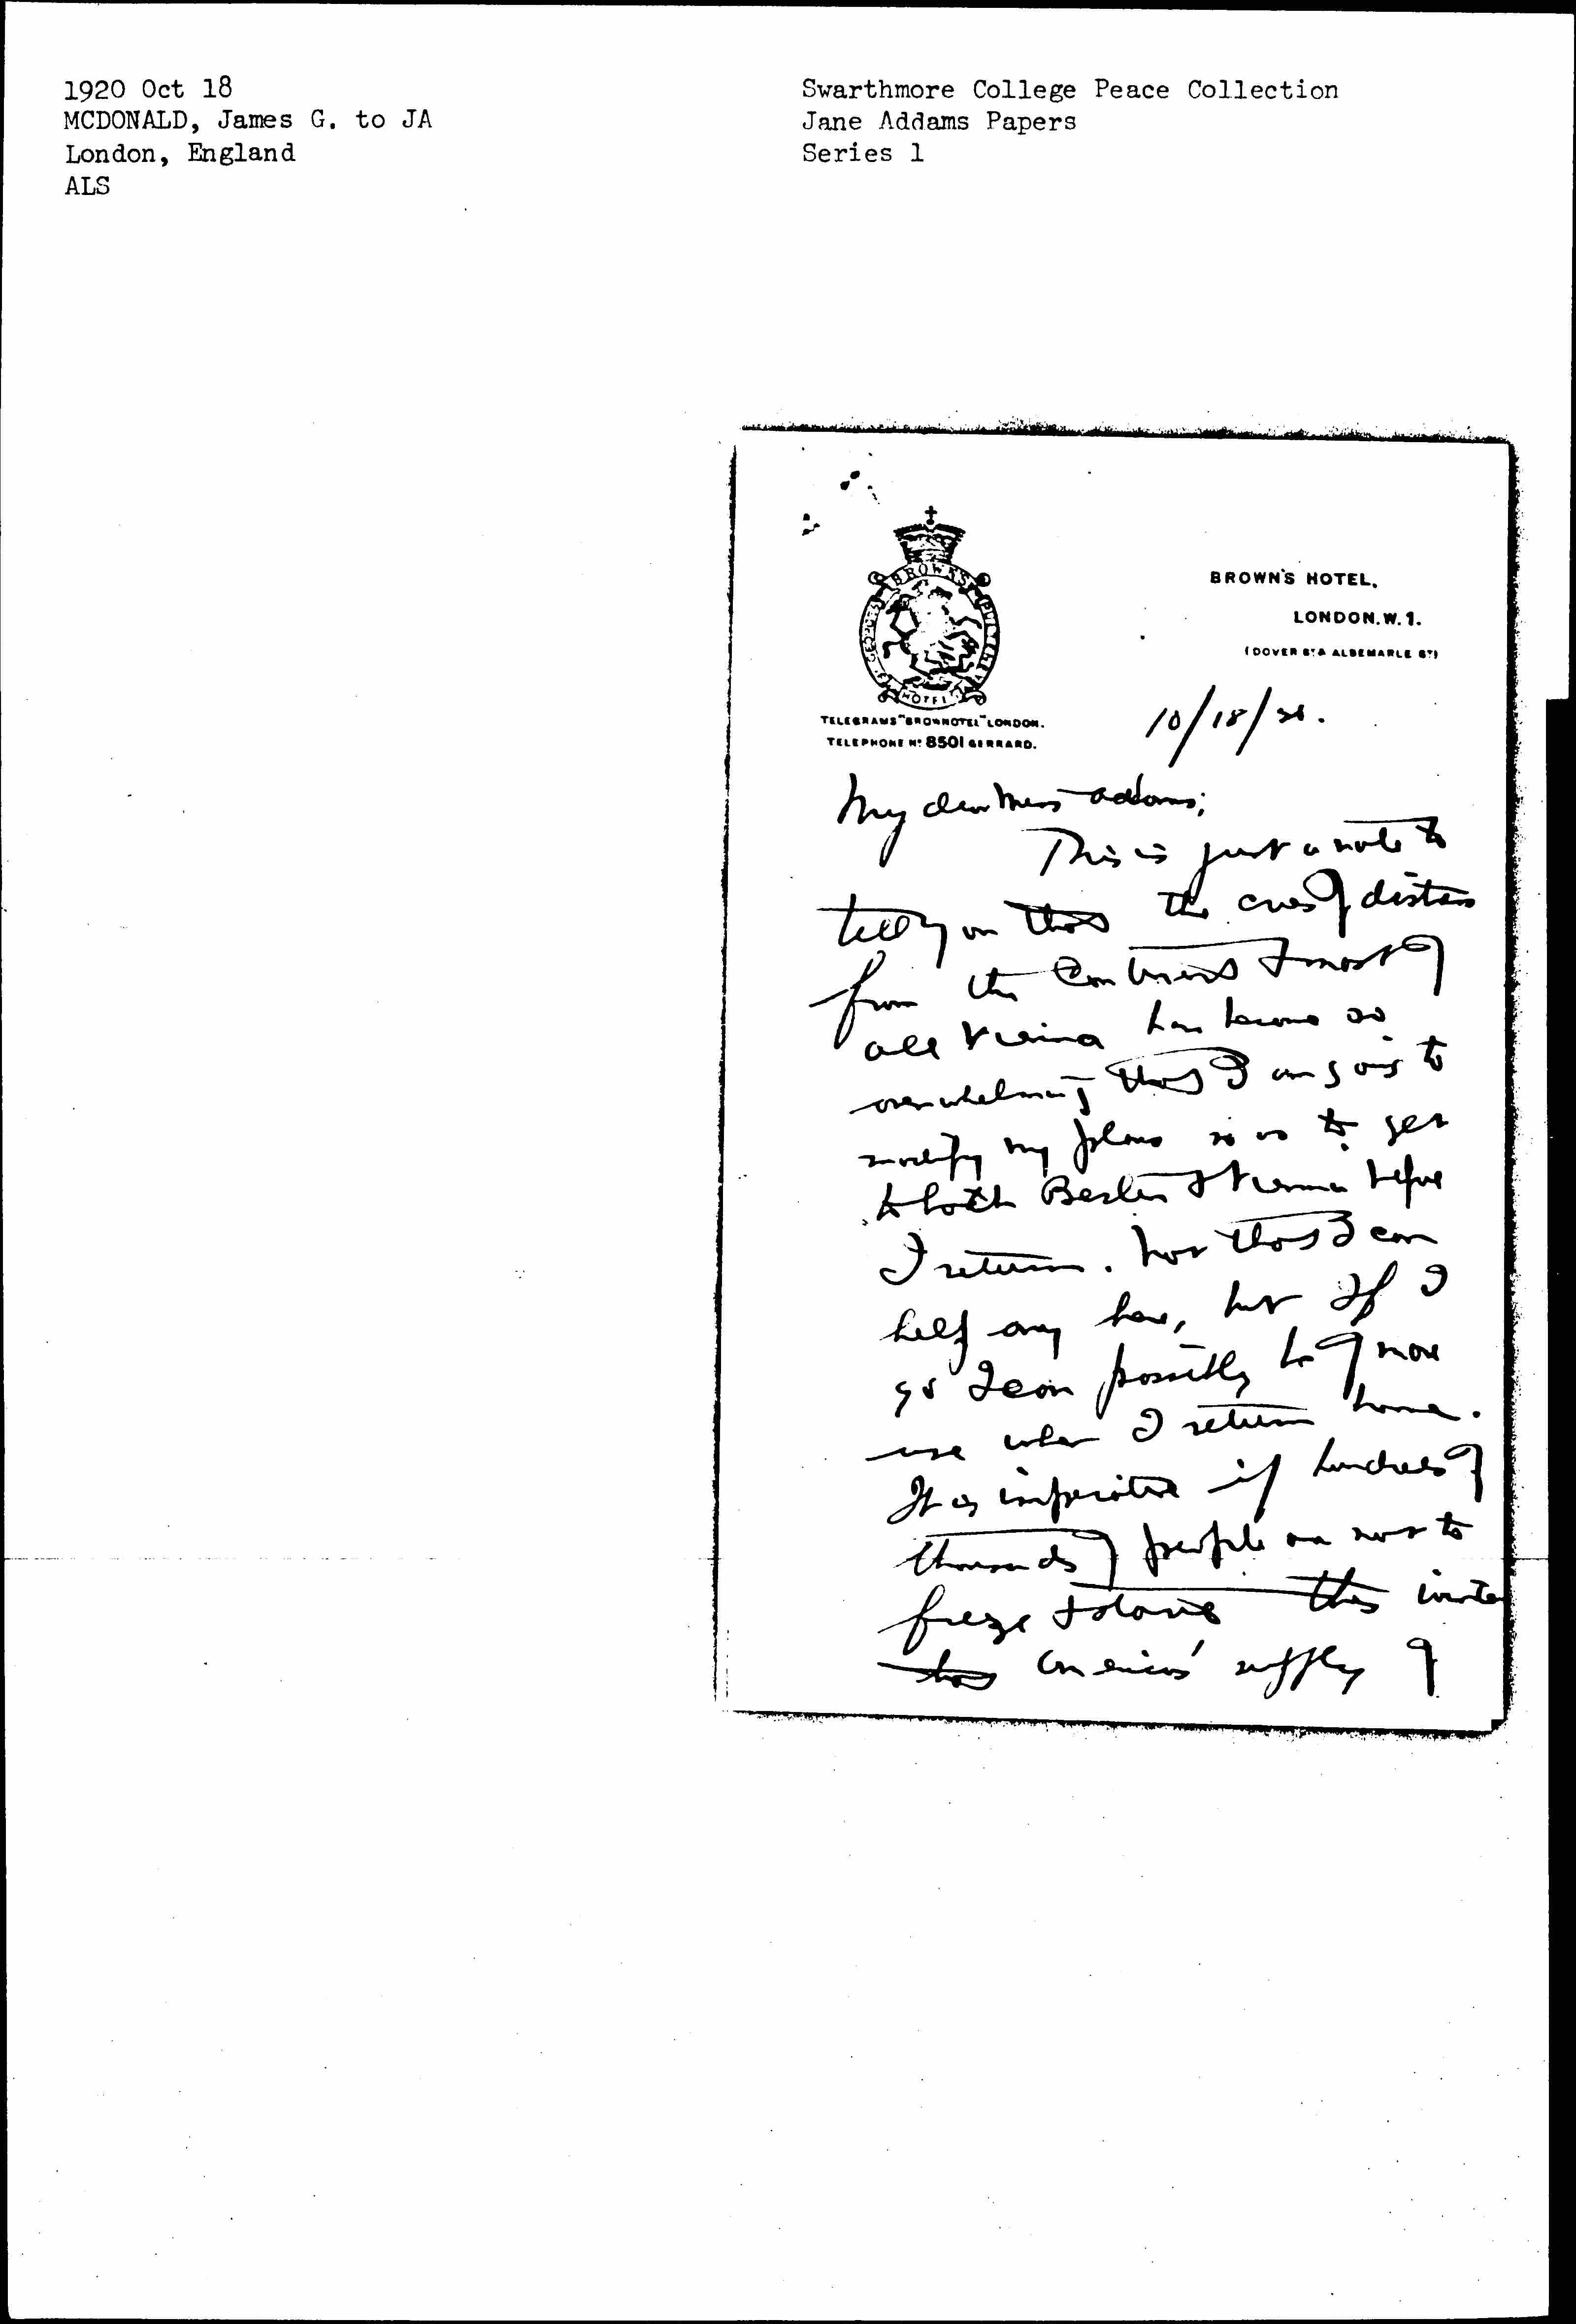 1920 Oct 18
MCDONALD, James G. to JA
London, England
ALS
Swarthmore College Peace Collection
Jane Addams Papers
Series 1
BROWN'S
HOTEL
BROWN'S HOTEL,
LONDON. W. 1.
(DOVER ST & ALBEMARLE ST)
TELEGRAMS "BROWNOTEL" LONDON.
TELEPHONE No 8501 GERRARD.
10/18/20.
My dear Miss Addams;
This is just a note to
tell you that the cries of distress
from the Continent & most of
all Vienna has become so
overwhelming that I am going to
modify my plans so as to get
to both Berlin & Vienna before
I return. Not that I can
help any here, but if I
go I can possibly be of more
use when I return home.
It is imperative if hundreds of
thousands of people are not to
freeze & starve this winter
that America's supply of